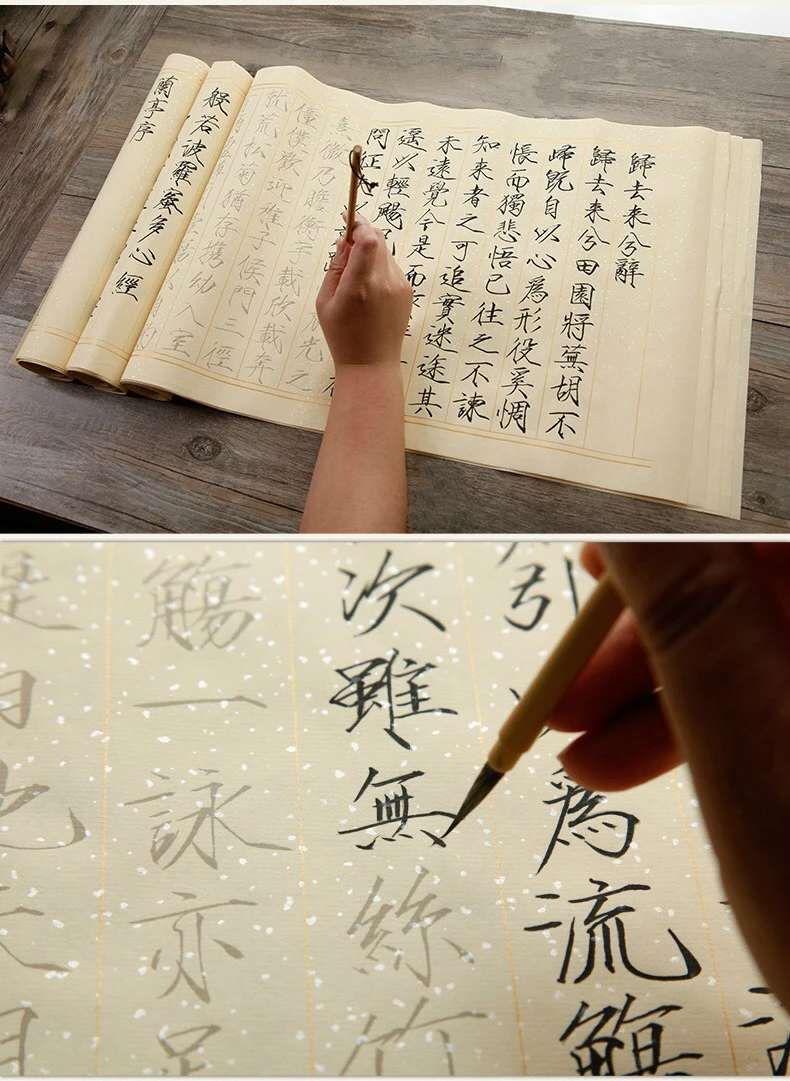 歸去来兮辭
歸去来兮田園將蕪胡不
歸既自以心為形役奚惆
悵而獨悲悟已往之不諫
知来者之可追實迷途其
未遠覺今是而
遥以輕颺
問征
光之
熹微乃瞻衡宇載欣載奔
僮僕歡迎稚子候門三徑
就荒松菊猶存攜幼入室
般若波羅蜜多心經
蘭亭序
引為流觴
次雖無絲竹
觴一詠亦足
是日也天